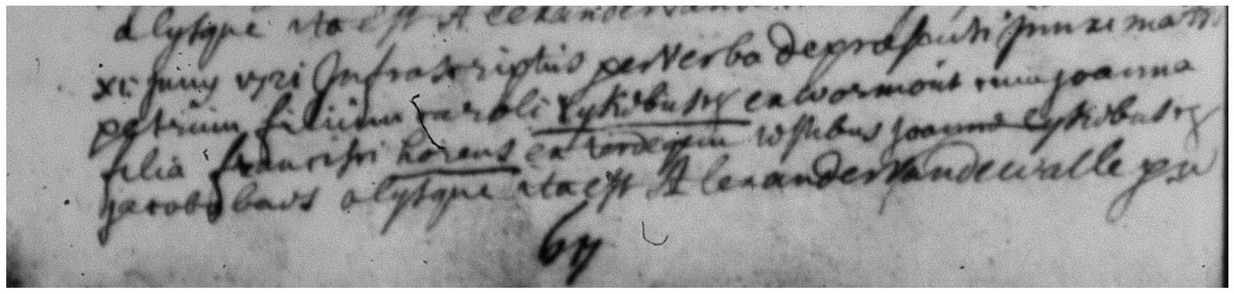 alysque ita est Alexander Vande
xi Juny 1721 Infrascriptus per verba de præsenti Junxi matri
petrum filium Caroli Lyskobustry ex wormont cum joanna
filia francisci horens ex eorde testibus joanne Lyskobustry
jacobo baus alysque ita est Alexander Vandewalle
67